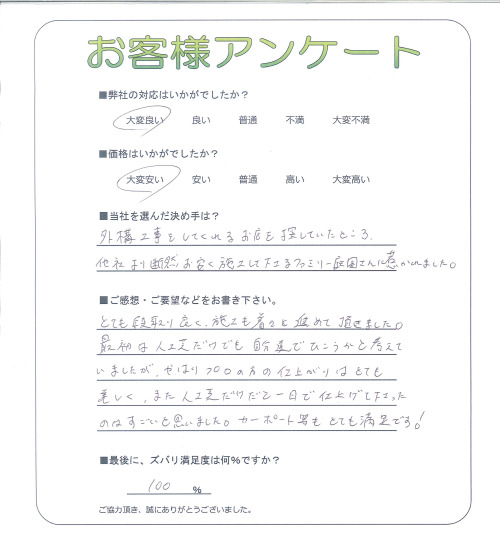 お客様アンケート
■弊社の対応はいかがでしたか？
大変良い 良い 普通 不満 大変不満
■価格はいかがでしたか？
大変安い 安い 普通 高い 大変高い
■当社を選んだ決め手は？
外構工事をしてくれるお店を探していたところ、
他社より断然お安く施工して下さるファミリー庭園さんに惹かれました。
■ご感想・ご要望などをお書き下さい。
とても段取り良く、施工も着々と進めて頂きました。
最初は人工芝だけでも自分達でひこうかと考えて
いましたが、やはりプロの方の仕上がりはとても
美しく、また人工芝だけだと一日で仕上げて下さった
のはすごいと思いました。カーポート等もとても満足です！
■最後に、ズバリ満足度は何％ですか？
100 ％
ご協力頂き、誠にありがとうございました。